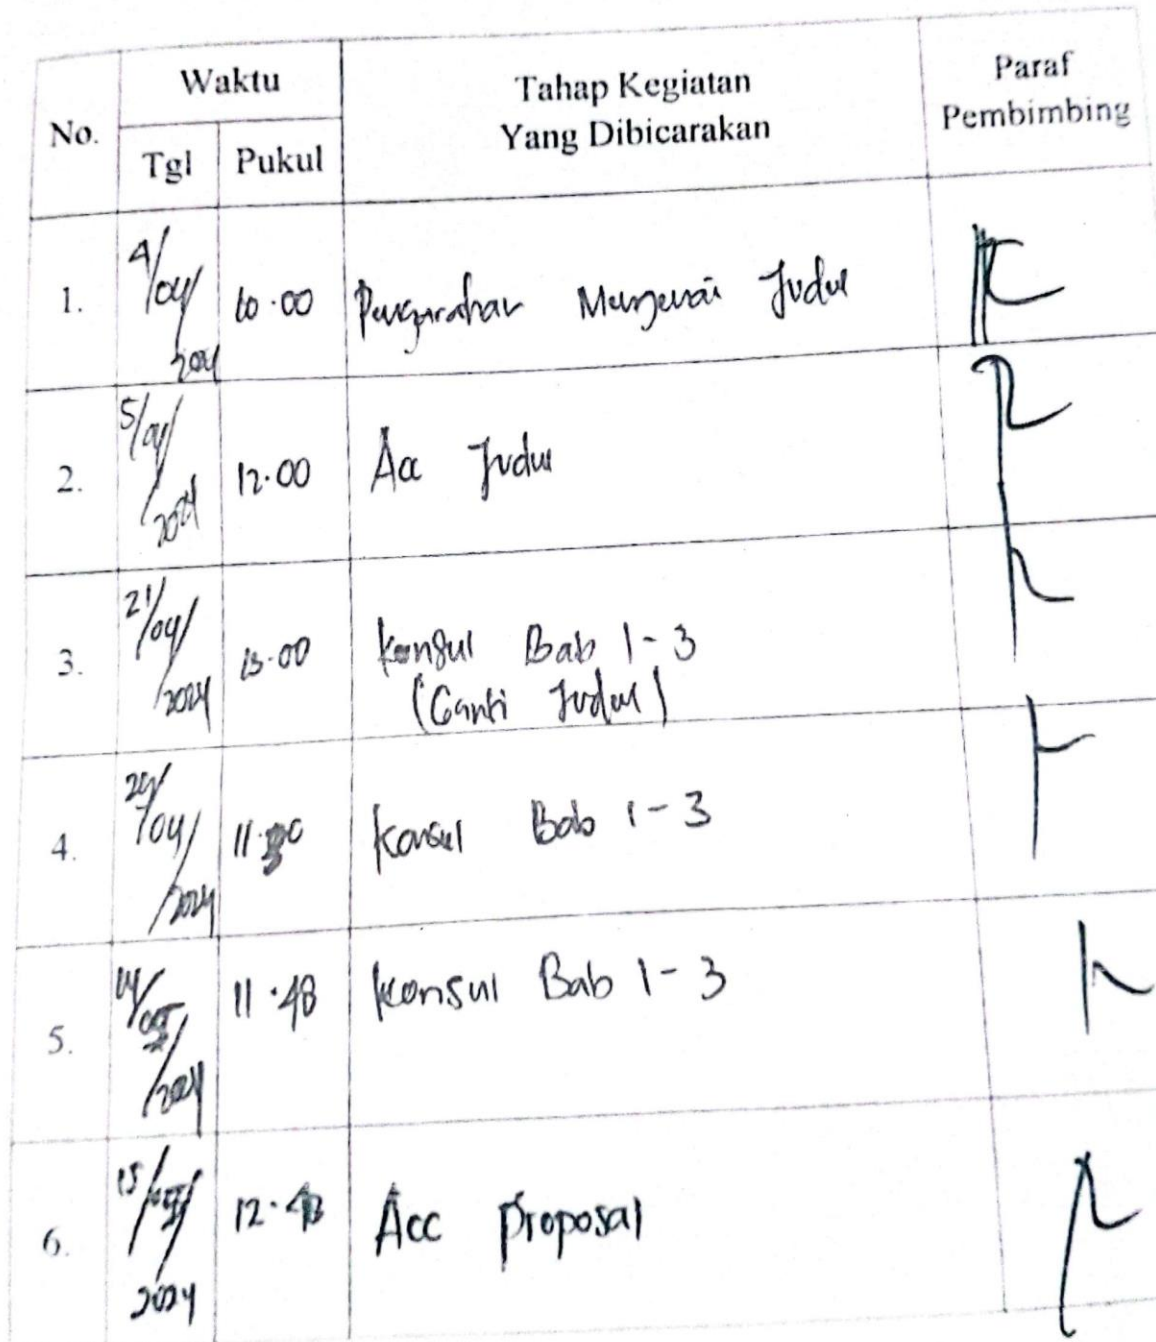 No. Waktu Tahap Kegiatan Yang Dibicarakan Paraf Pembimbing
Tgl Pukul
1. 4/04/2024 10.00 Pengarahan Mengenai Judul
2. 5/04/2024 12.00 Acc Judul
3. 21/04/2024 13.00 Konsul Bab 1-3
(Ganti Judul)
4. /04/2024 Konsul Bab 1-3
5. 14/05/2024 11.48 Konsul Bab 1-3
6. 15/05/2024 Acc Proposal